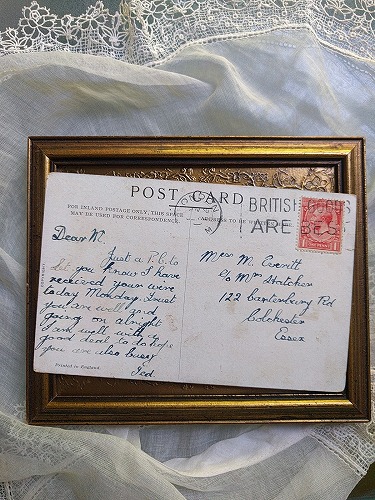 POST CARD
FOR INLAND POSTAGE ONLY, THIS SPACE
MAY BE USED FOR CORRESPONDENCE.
BRITISH GOODS
ARE BEST
Dear M.
Just a P.C. to
let you know I have
received your wire
today Monday. Trust
you are well and
going on alright
I am well with a
good deal to do hope
you are also busy
Ted.
Miss M. Everitt
c/o Mrs Hatcher
122 Canterbury Rd
Colchester
Essex
Printed in England.